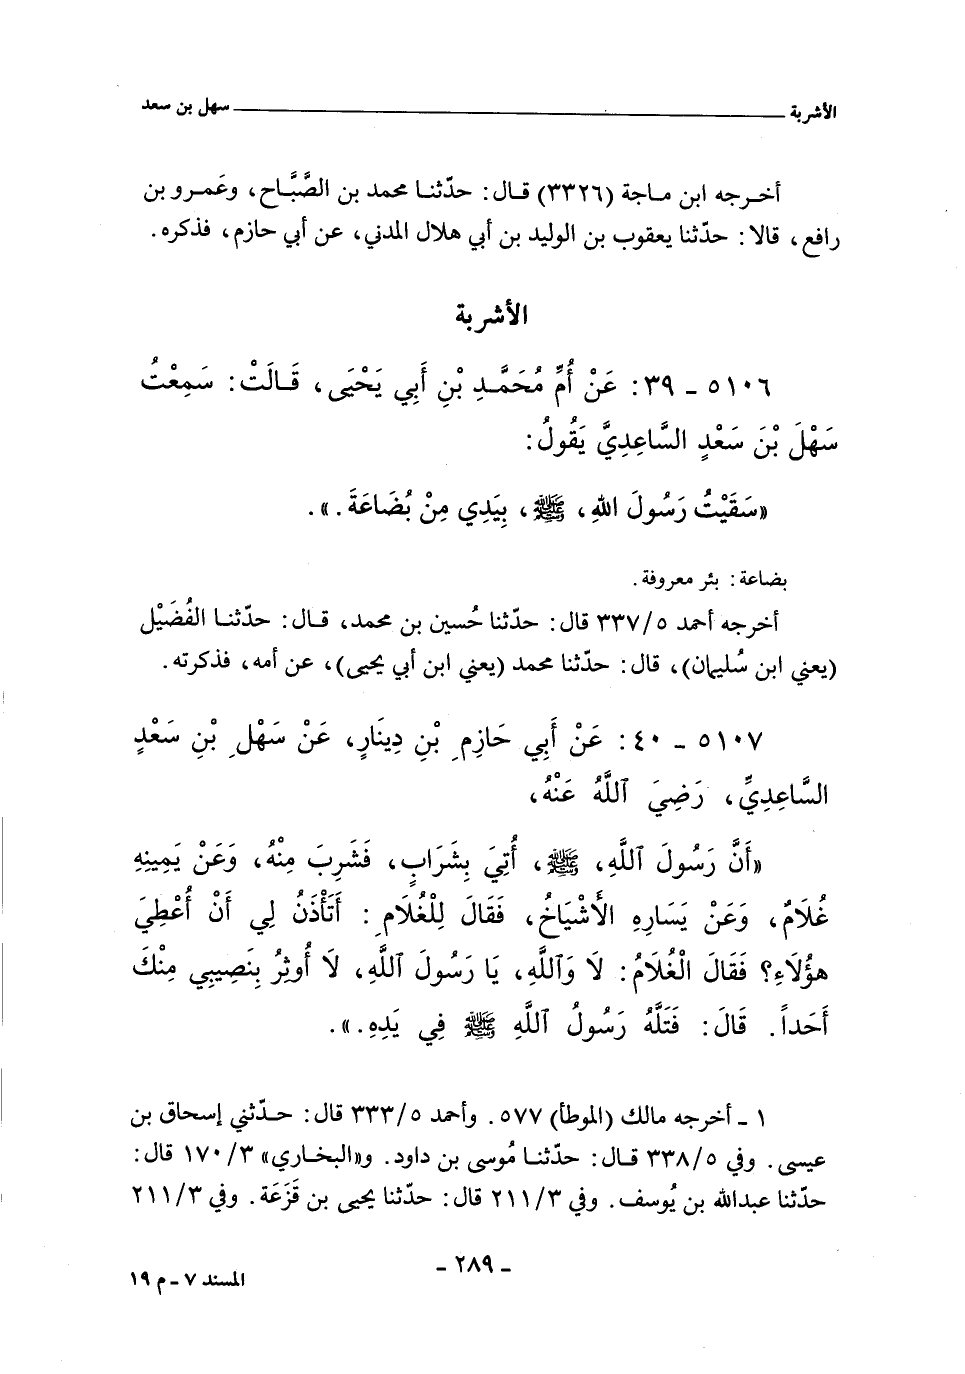 الأشربة ــــــــــ سهل بن سعد
أخـرجه ابن مـاجة (٣٣٢٦) قـال: حدّثنـا محمد بن الصَّبَّاح، وعَمـرو بن
رافع، قالا: حدّثنا يعقوب بن الوليد بن أبي هلال المدني، عن أبي حازم، فذكره.
الأشربة
٥١٠٦ - ٣٩: عَنْ أُمِّ مُحَمَّـدِ بْنِ أَبِي يَحْيَى، قَـالَتْ: سَمِعْتُ
سَهْلَ بْنَ سَعْدٍ السَّاعِدِيَّ يَقُولُ:
«سَقَيْتُ رَسُولَ اللهِ، ﷺ، بِيَدِي مِنْ بُضَاعَةَ.».
بضاعة: بئر معروفة.
أخرجه أحمد ٣٣٧/٥ قال: حدّثنا حُسين بن محمد، قـال: حدّثنـا الفُضَيْل
(يعني ابن سُليمان)، قال: حدّثنا محمد (يعني ابن أبي يحيى)، عن أمه، فذكرته.
٥١٠٧ - ٤٠: عَنْ أَبِي حَازِمِ بْنِ دِينَارٍ، عَنْ سَهْلِ بْنِ سَعْدٍ
السَّاعِدِيِّ، رَضِيَ ٱللَّهُ عَنْهُ،
«أَنَّ رَسُولَ ٱللَّهِ، ﷺ، أُتِيَ بِشَرَابٍ، فَشَرِبَ مِنْهُ، وَعَنْ يَمِينِهِ
غُلَامٌ، وَعَنْ يَسَارِهِ الأَشْيَاخُ، فَقَالَ لِلْغُلَامِ: أَتَأْذَنُ لِي أَنْ أُعْطِيَ
هؤُلَاءِ؟ فَقَالَ الْغُلَامُ: لَا وَٱللَّهِ، يَا رَسُولَ ٱللَّهِ، لَا أُوثِرُ بِنَصِيبِي مِنْكَ
أَحَداً. قَالَ: فَتَلَّهُ رَسُولُ ٱللَّهِ ﷺ فِي يَدِهِ.».
١ - أخرجه مالك (الموطأ) ٥٧٧. وأحمد ٣٣٣/٥ قال: حـدّثني إسحاق بن
عيسى. وفي ٣٣٨/٥ قـال: حدّثنـا مُوسى بن داود. و«البخـاري» ١٧٠/٣ قال:
حدّثنا عبدالله بن يُوسف. وفي ٢١١/٣ قال: حدّثنا يحيى بن قَزَعَة. وفي ٢١١/٣
- ٢٨٩ -
المسند ٧ - م ١٩